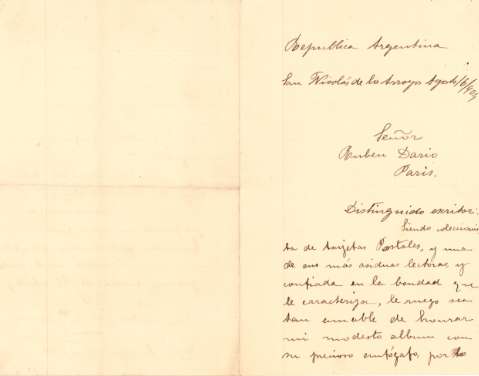 Republica Argentina
San Nicolás de los Arroyos Agosto
Señor
Ruben Dario
Paris.
Distinguido escritor:
Siendo
ta de tarjetas Postales, y una
de sus más asiduas lectoras, y
confiada en la bondad que
le caracteriza, le ruego sea
tan amable de honrar
mi modesto album con
su precioso autógrafo, por lo